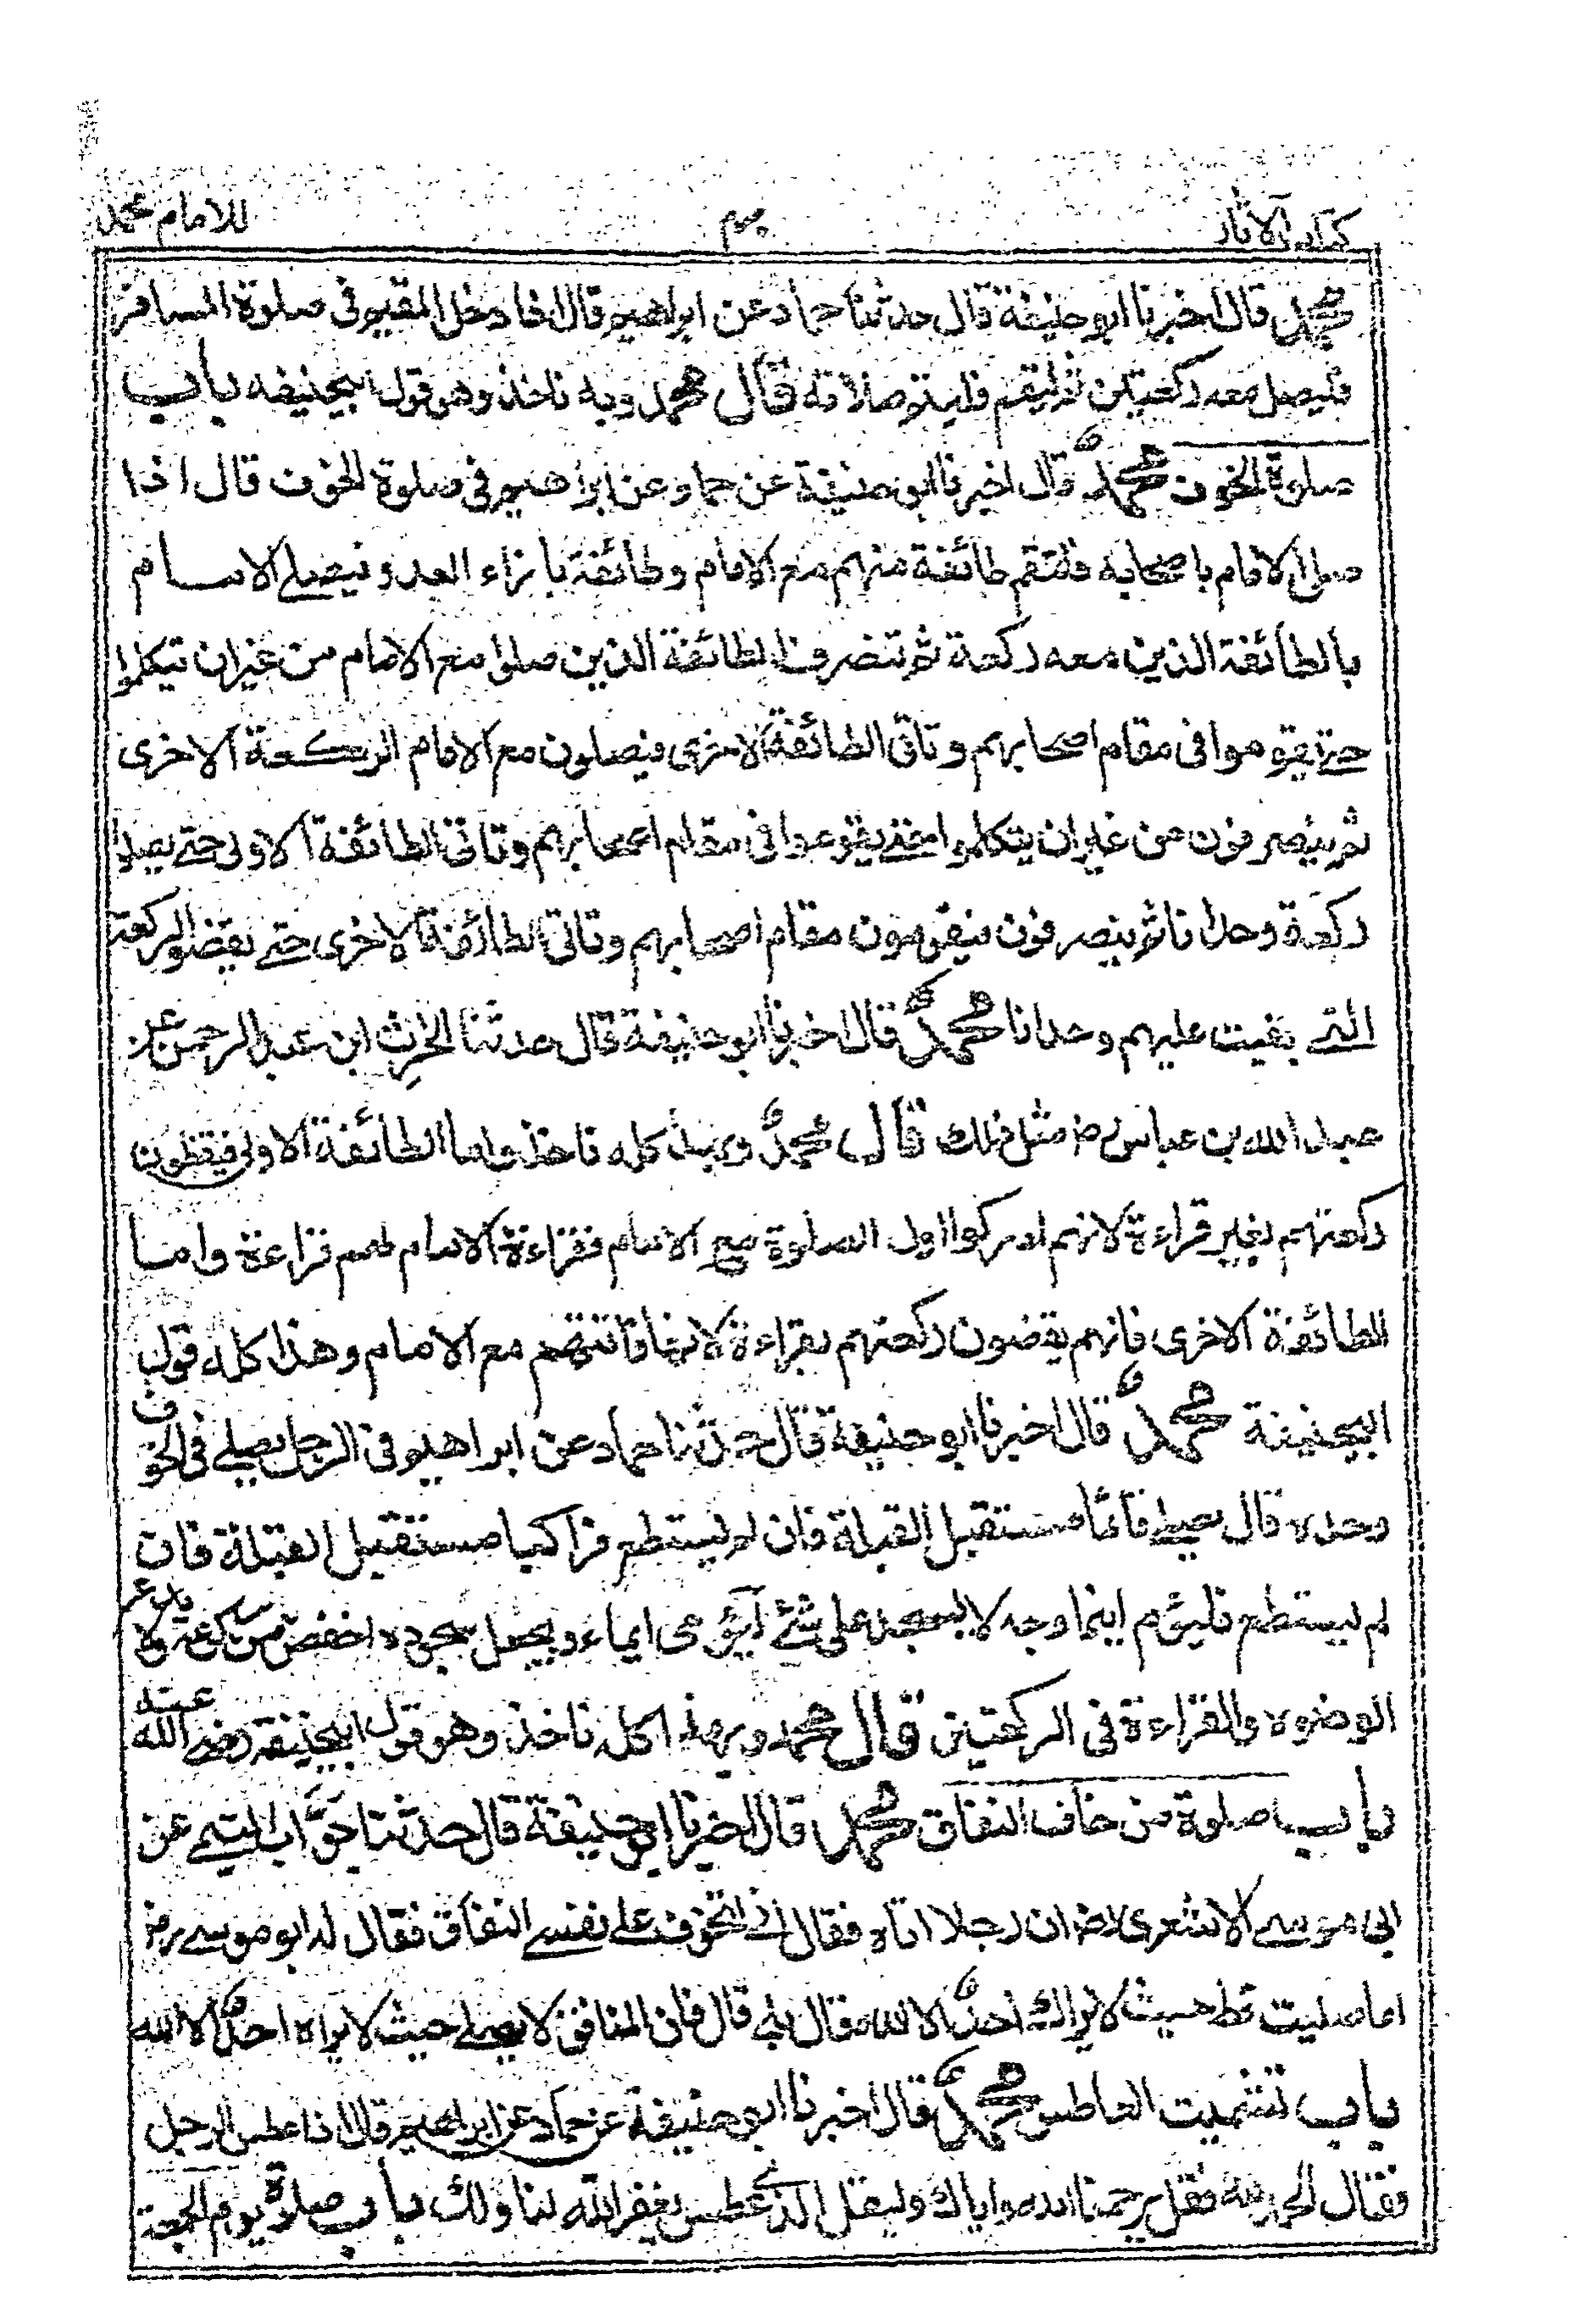 كتاب الآثار
للامام محمد
محمد قال اخبرنا ابو حنيفة قال حدثنا حماد عن ابراهيم قال اذا دخل المقيم فى صلوة المسافر
فليصل معه ركعتين ثم ليقم فليتم صلاته قال محمد وبه ناخذ وهو قول ابيحنيفه باب
صلوة الخوف محمد قال اخبرنا ابو حنيفة عن حماد عن ابراهيم فى صلوة الخوف قال اذا
صلى الامام باصحابه فلتقم طائفة منهم مع الامام وطائفة بازاء العدو فيصلے الامام
بالطائفة الذين معه ركعة ثم تنصرف الطائفة الذين صلوا مع الامام من غير ان يتكلموا
حتے يقوموا فى مقام اصحابهم وتاتى الطائفة الاخرى فيصلون مع الامام الركعة الاخرى
ثم ينصرفون من غير ان يتكلموا حتے يقوموا فى مقام اصحابهم وتاتى الطائفة الاولى حتے يصلوا
ركعة وحدانا ثم ينصرفون فيقومون مقام اصحابهم وتاتى الطائفة الاخرى حتے يقضوا الركعة
التے بقيت عليهم وحدانا محمد قال اخبرنا ابو حنيفة قال حدثنا الحرث ابن عبد الرحمن عن
عبد الله بن عباس رض مثل ذلك قال محمد وبهذا كله ناخذ واما الطائفة الاولى فيقضون
ركعتهم بغير قراءة لانهم ادركوا اول الصلوة مع الامام فقراءة الامام لهم قراءة واما
الطائفة الاخرى فانهم يقضون ركعتهم بقراءة لانها فاتتهم مع الامام وهذا كله قول
ابيحنيفة محمد قال اخبرنا ابو حنيفة قال حدثنا حماد عن ابراهيم فى الرجل يصلے فى الخوف
وحده قال يصلے قائما مستقبل القبلة فان لم يستطع فراكبا مستقبل القبلة فان
لم يستطع فليؤم اينما وجه لا يسجد على شئ ليؤمى ايماء ويجعل سجوده اخفض من ركوعه ولا يدع
الوضوء والقراءة فى الركعتين قال محمد وبهذا كله ناخذ وهو قول ابيحنيفة رضے الله عنه
باب صلوة من خاف النفاق محمد قال اخبرنا ابو حنيفة قال حدثنا جوّاب التيمے عن
ابى موسے الاشعرى رض ان رجلا اتاه فقال انے اتخوف علے نفسے النفاق فقال له ابو موسے رض
اما صليت قط حيث لا يراك احدٌ الا الله فقال بلے قال فان المنافق لا يصلے حيث لا يراه احدٌ الا الله
باب تشميت العاطس محمد قال اخبرنا ابو حنيفة عن حماد عن ابراهيم قال اذا عطس الرجل
فقال الحمد لله فقل يرحمنا الله واياك وليقل الذے عطس يغفر الله لنا ولك باب صلوة يوم الجمعة